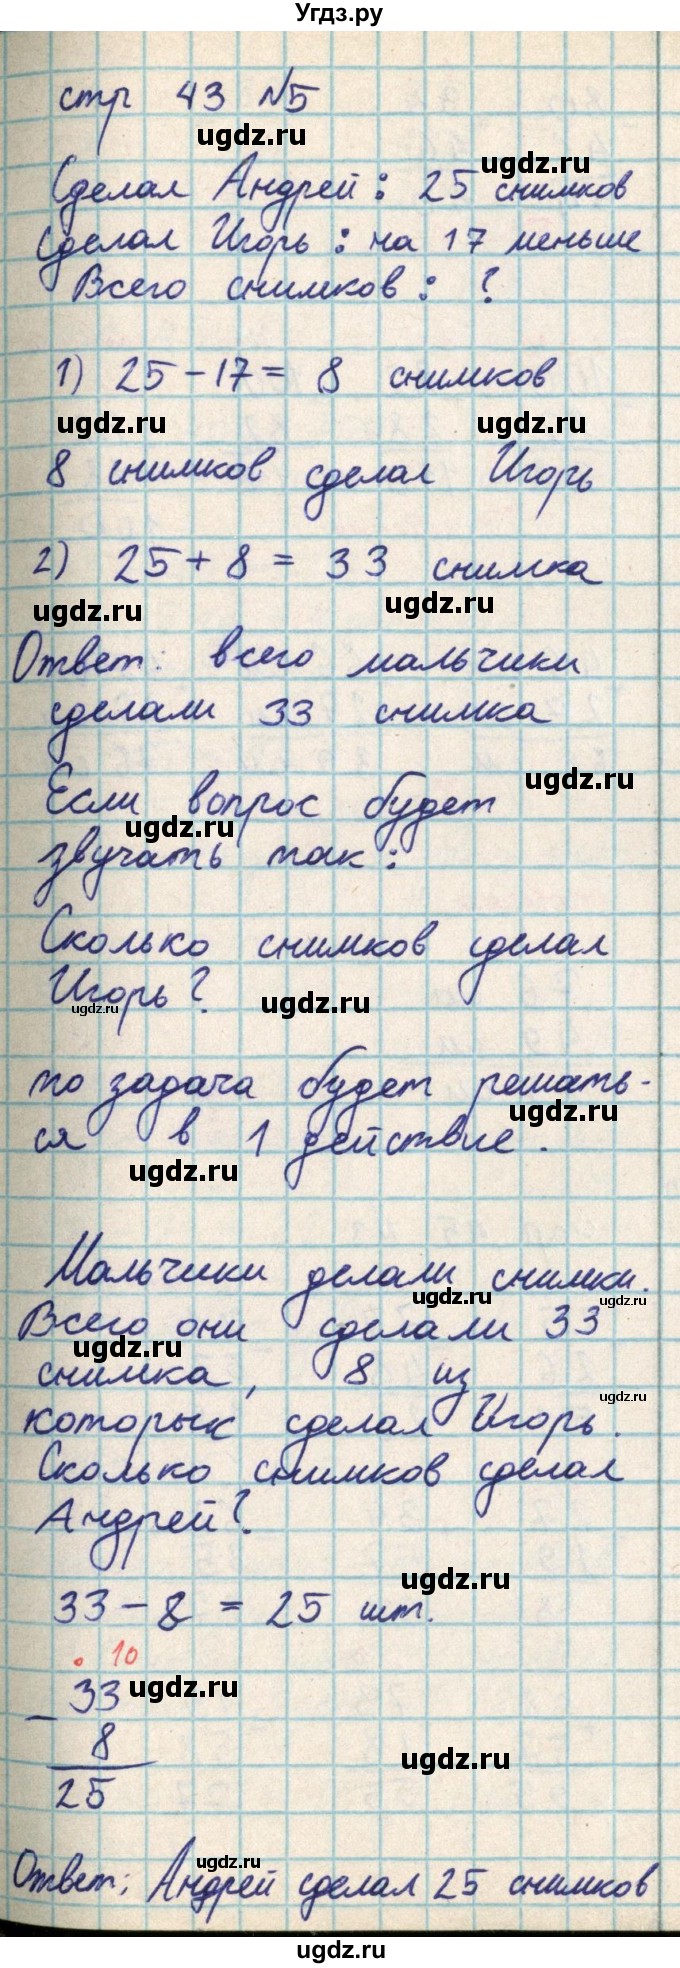 Угдз.ру
стр 43 №5
ugdz.ru ugdz.ru
Сделал Андрей: 25 снимков
Сделал Игорь: на 17 меньше
Всего снимков: ?
1) 25-17= 8 снимков
ugdz.ru ugdz.ru
8 снимков сделал Игорь
2) 25+8=33 снимка
ugdz.ru ugdz.ru
Ответ: всего мальчики
сделали 33 снимка
ugdz.ru
Если вопрос будет
ugdz.ru
звучать так:
Сколько снимков сделал
Игорь?
ugdz.ru ugdz.ru
то задача будет решать-
ugdz.ru
ся в 1 действие.
ugdz.ru
Мальчики делали снимки.
ugdz.ru ugdz.ru
Всего они сделали 33
ugdz.ru
снимка, 8 из
ugdz.ru
которых сделал Игорь.
Сколько снимков сделал
Андрей?
ugdz.ru
33-8=25 шт.
. 10
33
ugdz.ru
- 8
ugdz.ru
25
ugdz.ru
Ответ: Андрей сделал 25 снимков
ugdz.ru